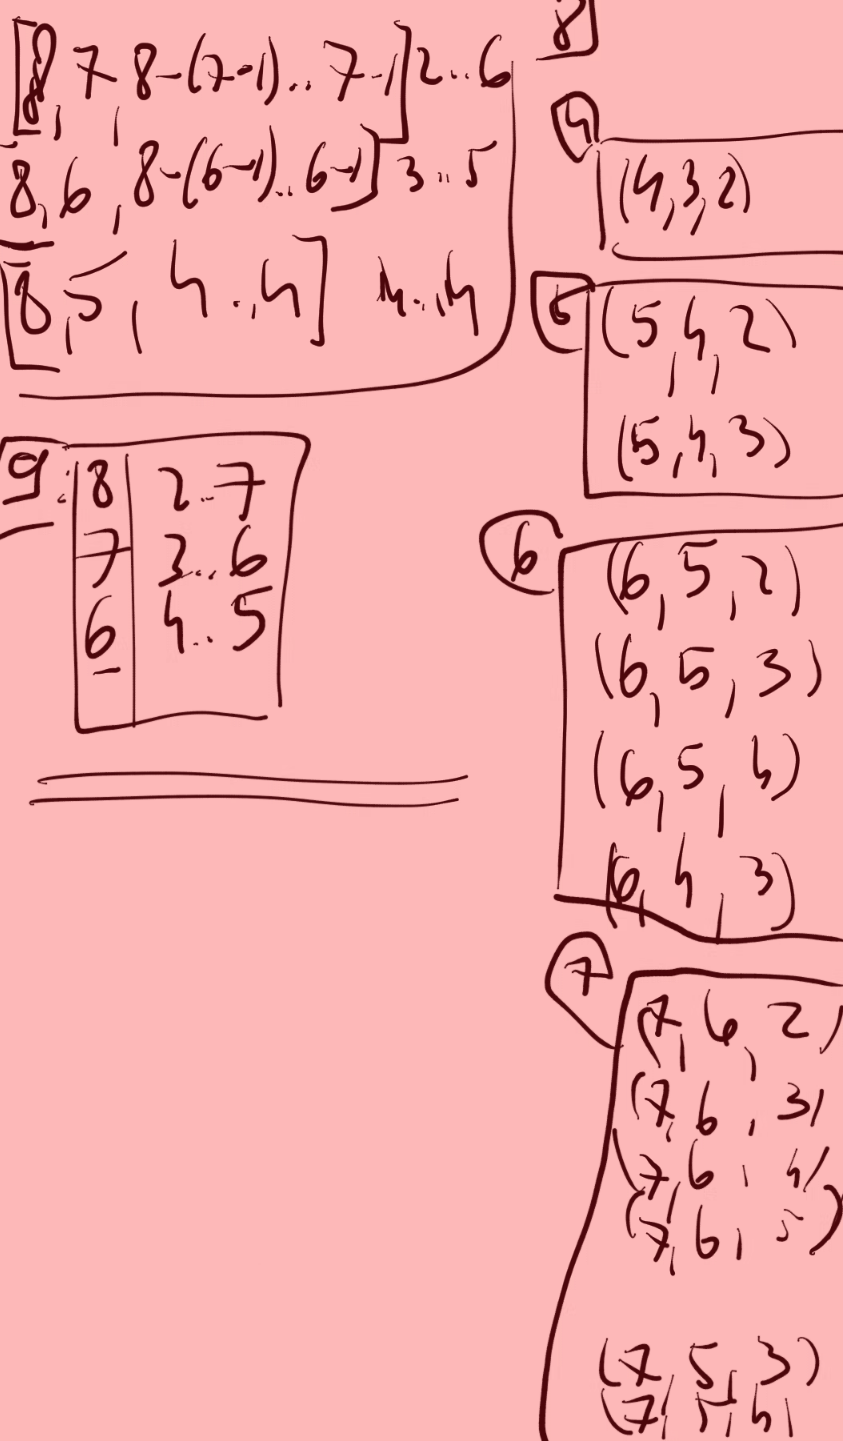 [8, 7, 8-(7-1)..7-1] 2..6
8, 6, 8-(6-1)..6-1] 3..5
[8, 5, 4..4] 4..4
9: 8 2..7
7 3..6
6 4..5
8]
4
(4,3,2)
5
(5,4,2)
(5,4,3)
6
(6,5,2)
(6,5,3)
(6,5,4)
(6,4,3)
7
(7,6,2)
(7,6,3)
(7,6,4)
(7,6,5)
(7,5,3)
(7,5,4)